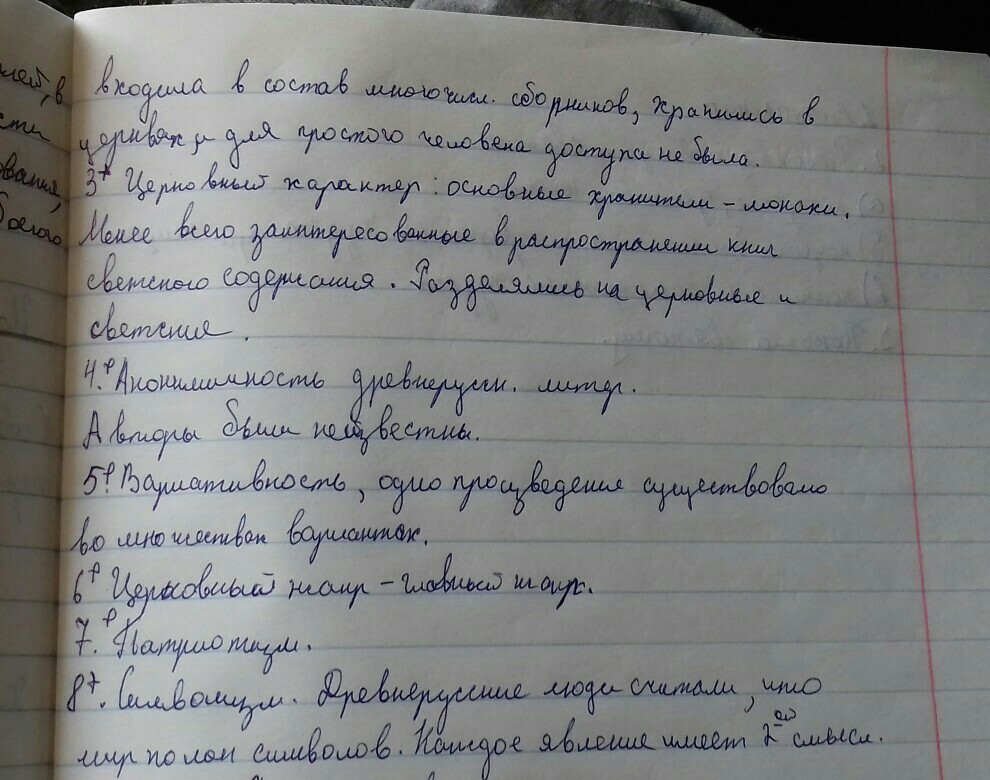 входила в состав многочисл. сборников, хранились в
церквях, и для простого человека доступа не была.
3 Церковный характер: основные хранители - монахи.
Менее всего заинтересованные в распространении книг
светского содержания. Разделялись на церковные и
светские.
4. Анонимичность древнерусск. литер.
Авторы были неизвестны.
5. Вариативность, одно произведение существовало
во множествах вариантах.
6 Церковный жанр - главный жанр.
7. Патриотизм.
8. Символизм. Древнерусские люди считали, что
мир полон символов. Каждое явление имеет 2ой смысл.
лей, в
сти
ования,